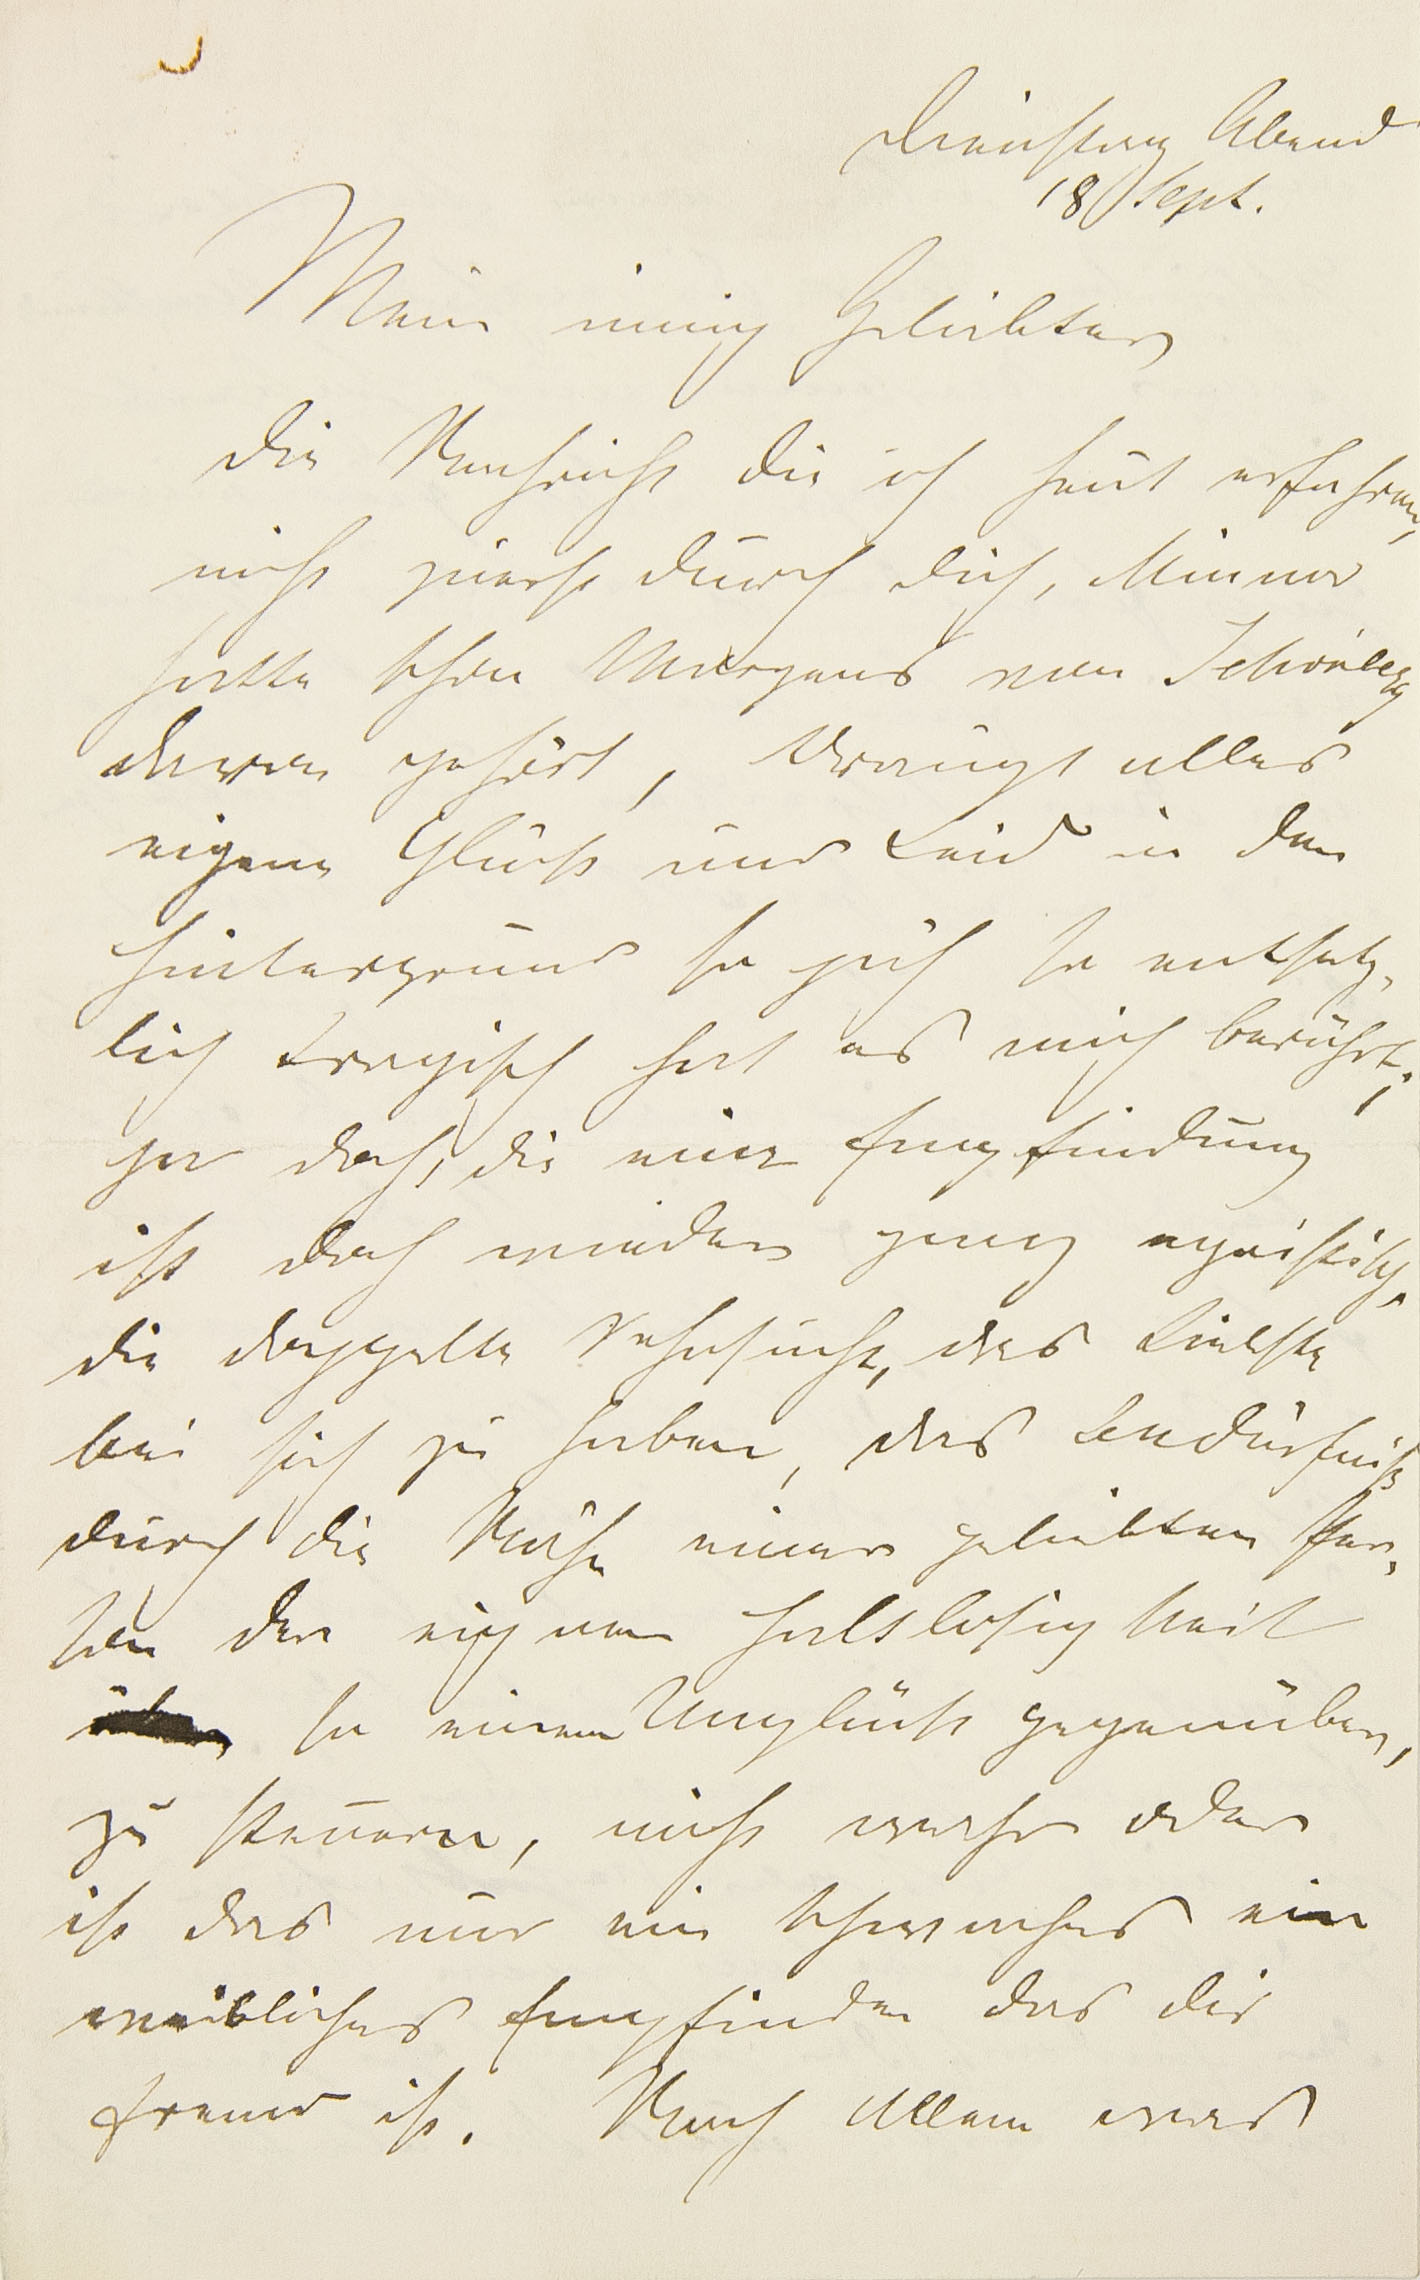 Dienstag Abend
18 Sept.
Mein innig Geliebter
Die Nachricht die ich heut erfahren,
nicht zuerst durch dich, Minna
hatte schon Morgens von Schönberg
davon gehört, drängt alles
eigene Glück und Leid in den
Hintergrund so jäh so entsetz-
lich tragisch hat es mich berührt;
ja doch, die eine Empfindung
ist doch wieder ganz egoistisch,
die doppelte Sehnsucht, das Liebste
bei sich zu haben, das Bedürfniß
durch die Nähe einer geliebten Per-
son der eignen Haltlosigkeit
so einem Unglück gegenüber,
zu steuern, nicht wahr oder
ist das nur ein schwaches ein
weibliches Empfinden das dir
fremd ist. Nach Allem was